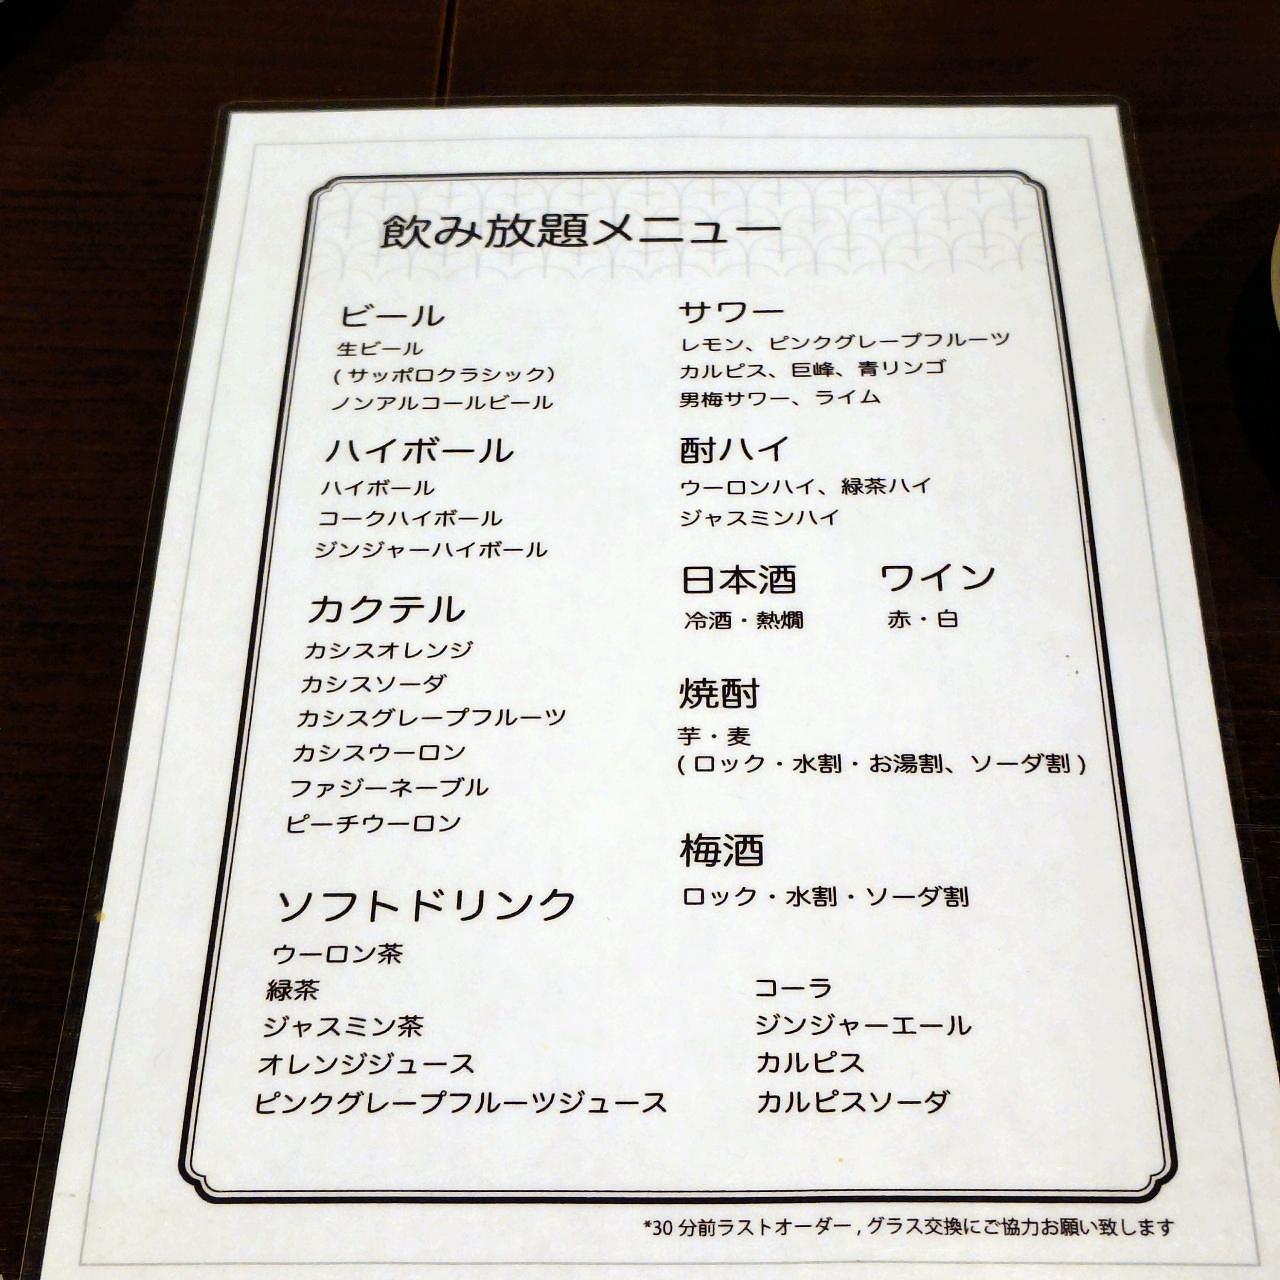 飲み放題メニュー
ビール
生ビール
(サッポロクラシック)
ノンアルコールビール
ハイボール
ハイボール
コークハイボール
ジンジャーハイボール
カクテル
カシスオレンジ
カシスソーダ
カシスグレープフルーツ
カシスウーロン
ファジーネーブル
ピーチウーロン
サワー
レモン、ピンクグレープフルーツ
カルピス、巨峰、青リンゴ
男梅サワー、ライム
酎ハイ
ウーロンハイ、緑茶ハイ
ジャスミンハイ
日本酒
冷酒・熱燗
ワイン
赤・白
焼酎
芋・麦
(ロック・水割・お湯割、ソーダ割)
梅酒
ロック・水割・ソーダ割
ソフトドリンク
ウーロン茶
緑茶
ジャスミン茶
オレンジジュース
ピンクグレープフルーツジュース
コーラ
ジンジャーエール
カルピス
カルピスソーダ
*30 分前ラストオーダー , グラス交換にご協力お願い致します